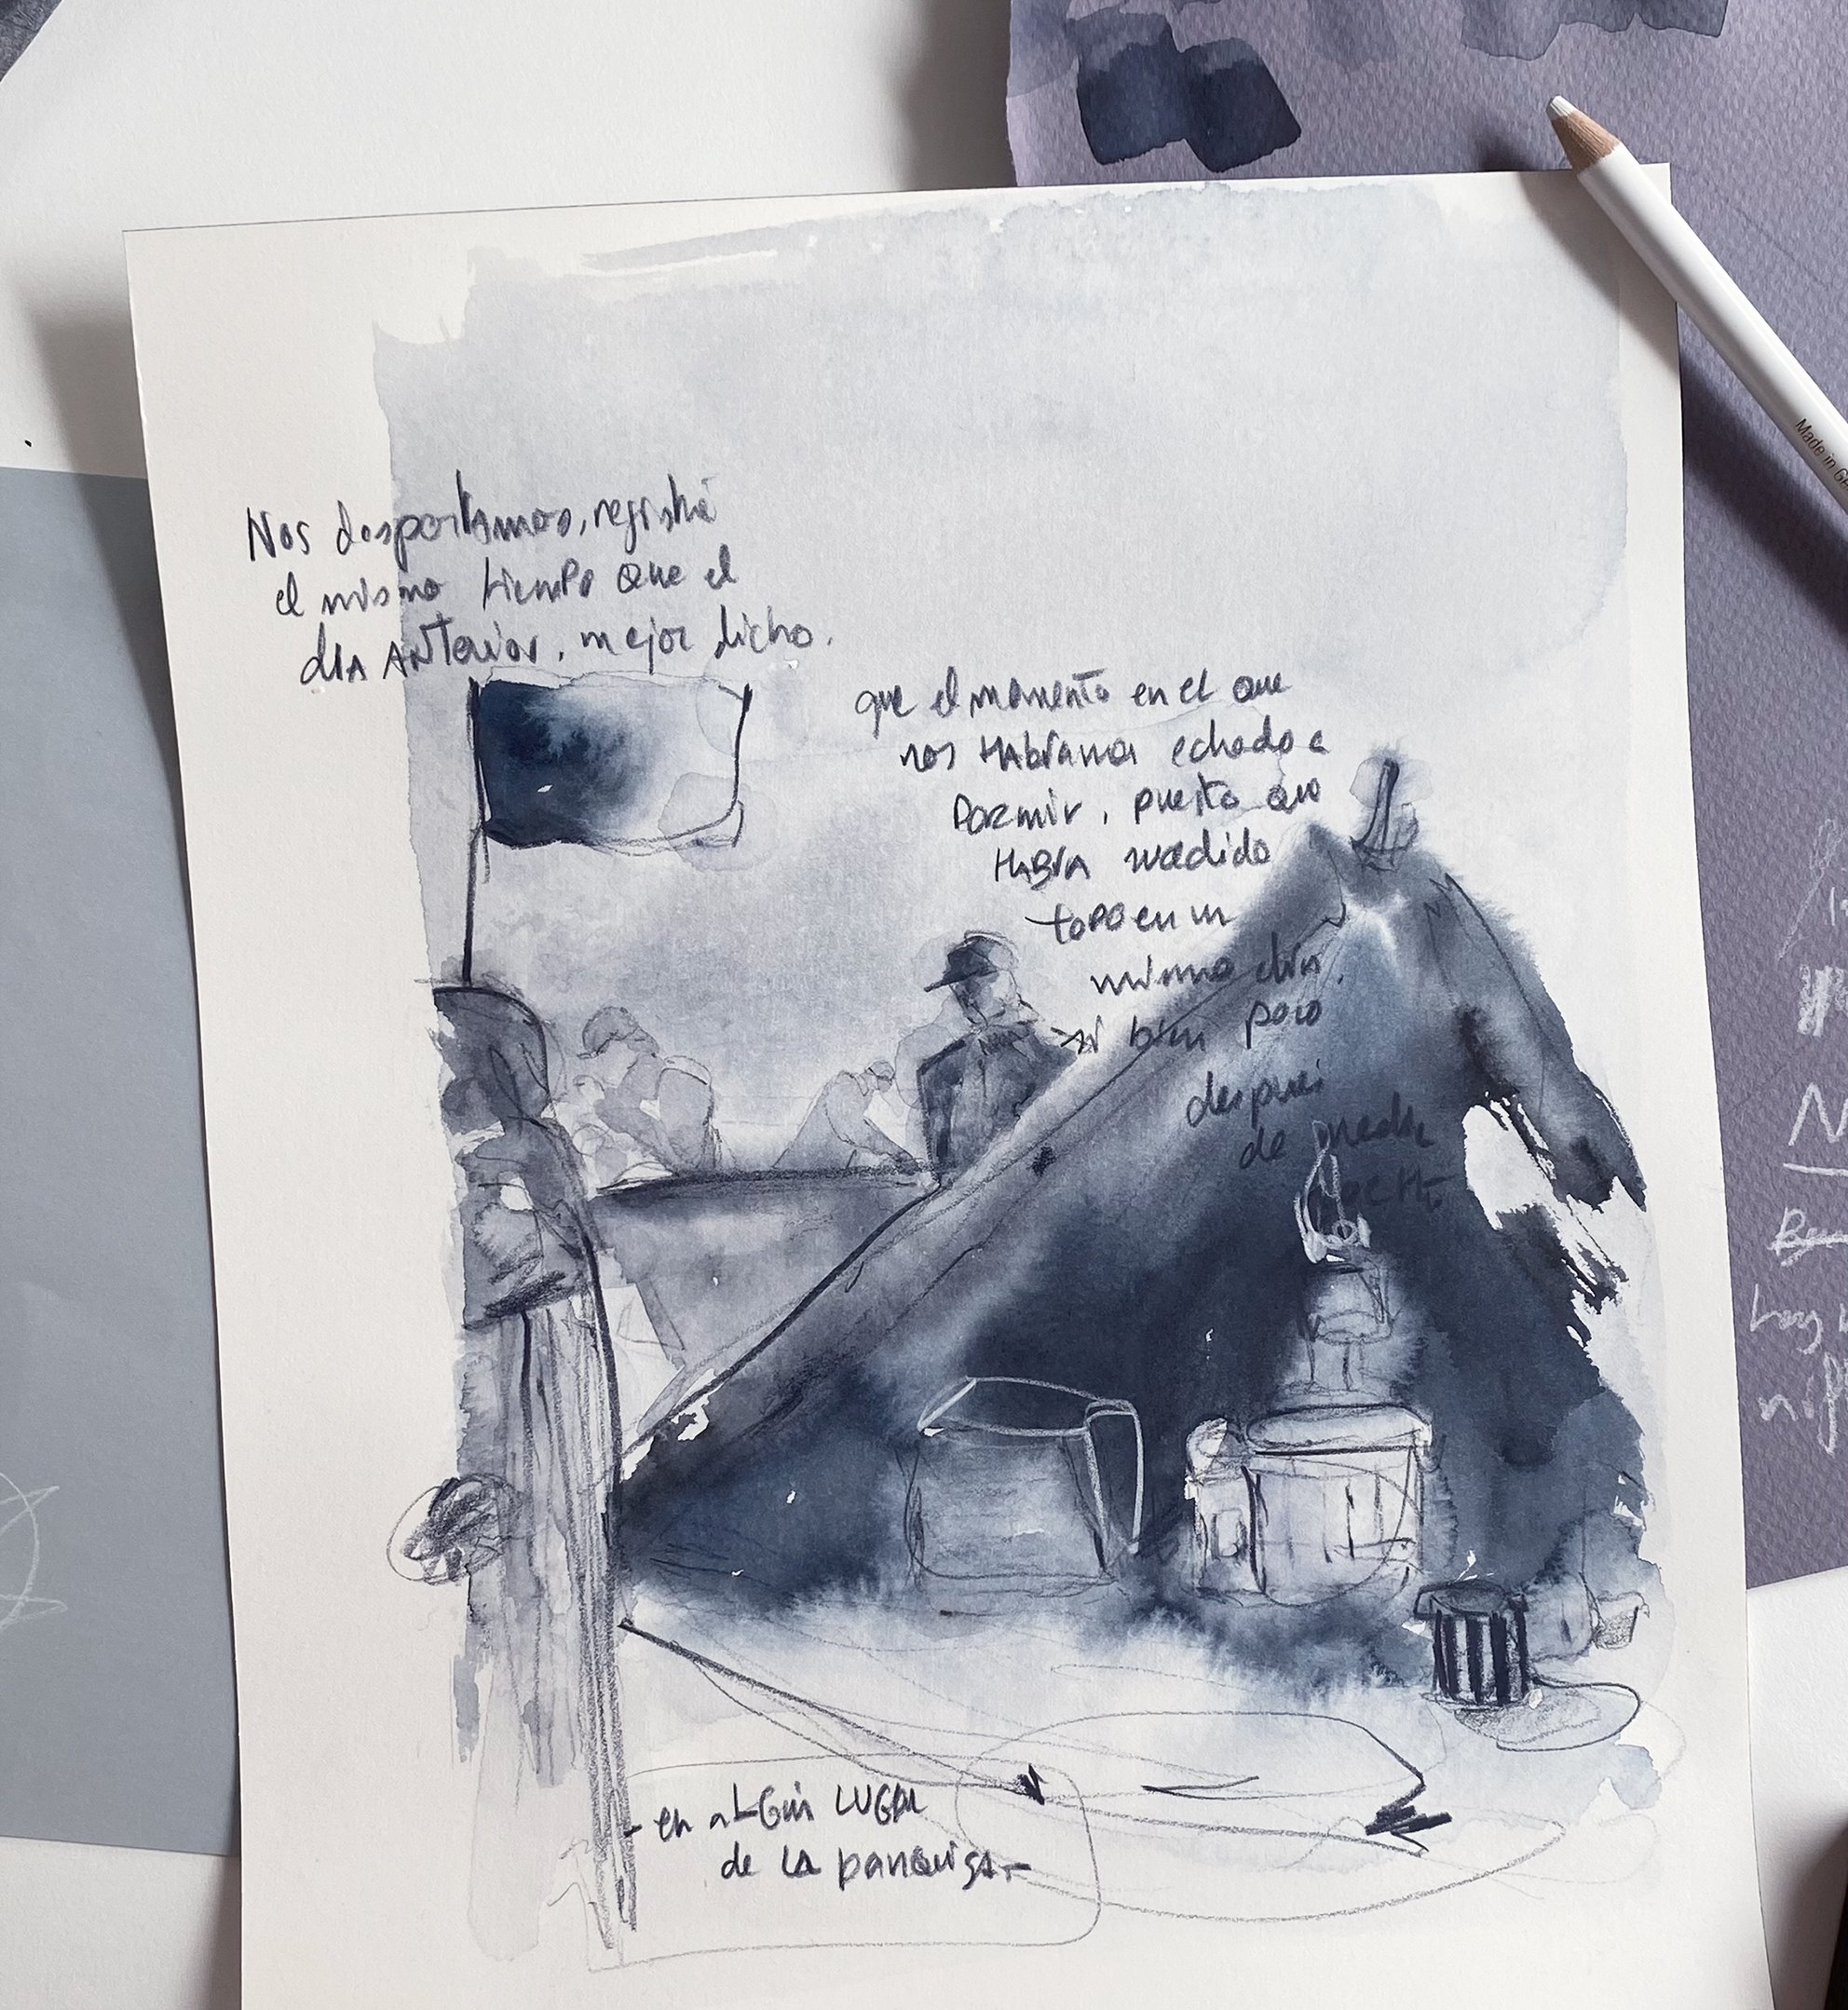 Nos despertamos, registré
el mismo tiempo que el
díA ANTerior, mejor dicho.
que el momento en el que
nos HAbíamos echado a
Dormir, puesto que
HABíA sucedido
toDo en un
mismo día.
si bien poco
después
de media
nocHe
- en aLGún LUGAR
de LA banquisa -
Made in Ge
night